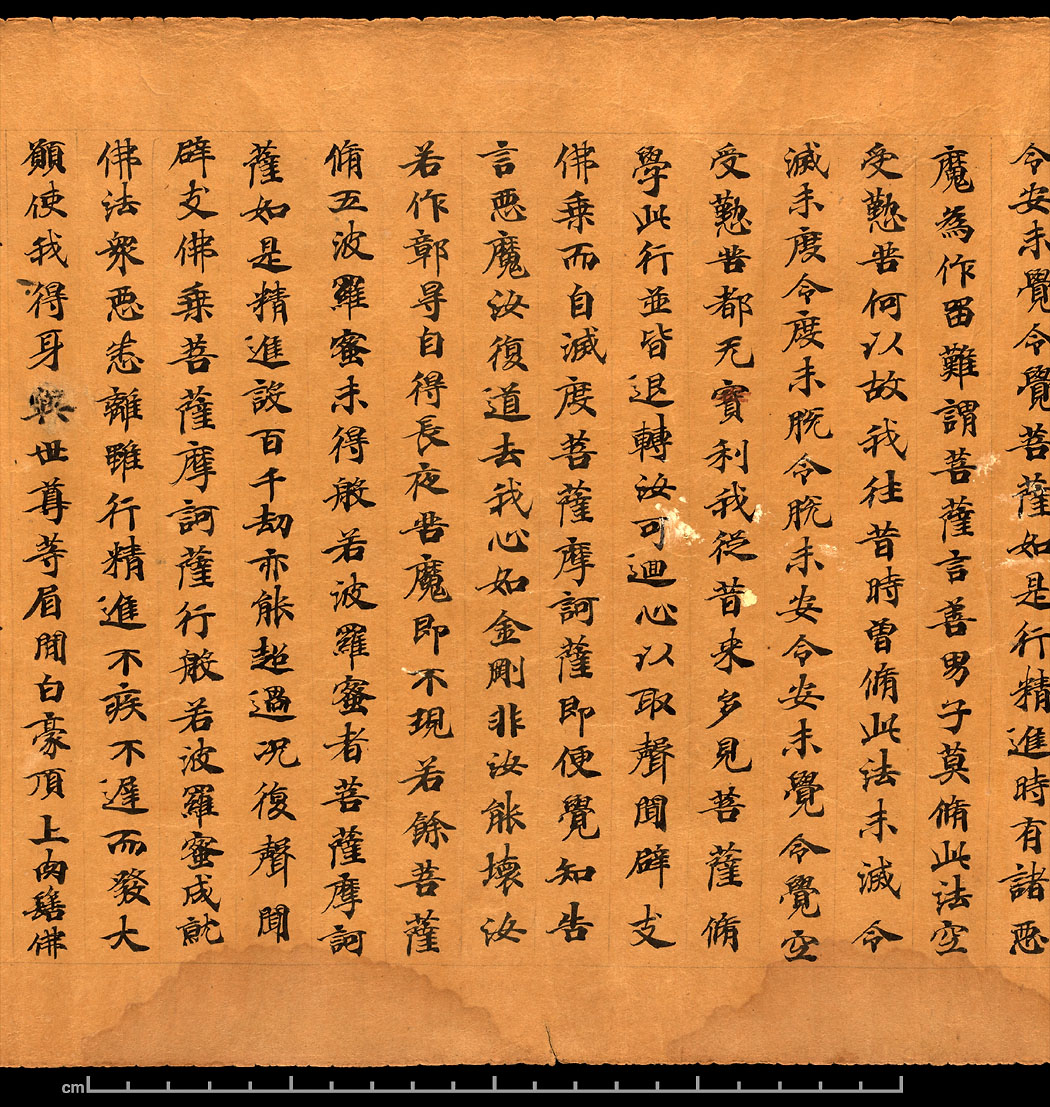 令安未覺令覺菩薩如是行精進時有諸惡
魔為作留難謂菩薩言善男子莫脩此法空
受懃苦何以故我往昔時曾脩此法未滅令
滅未度令度未脫令脫未安令安未覺令覺空
受懃苦都无實利我從昔来多見菩薩脩
學此行並皆退轉汝可迴心以取聲聞辟支
佛乗而自滅度菩薩摩訶薩即便覺知告
言惡魔汝復道去我心如金剛非汝能壞汝
若作鄣㝵自得長夜苦魔即不現若餘菩薩
脩五波羅蜜未得般若波羅蜜者菩薩摩訶
薩如是精進設百千劫亦能超過况復聲聞
辟支佛乗菩薩摩訶薩行般若波羅蜜成就
佛法衆惡悉離雖行精進不疾不遲而發大
願使我得身與世尊等眉間白豪頂上肉髻佛